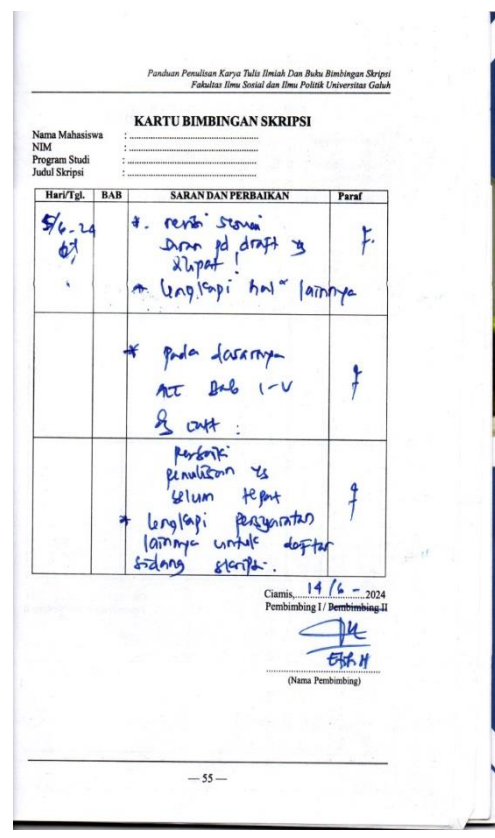 Panduan Penulisan Karya Tulis Ilmiah Dan Buku Bimbingan Skripsi
Fakultas Ilmu Sosial dan Ilmu Politik Universitas Galuh
KARTU BIMBINGAN SKRIPSI
Nama Mahasiswa :
NIM :
Program Studi :
Judul Skripsi :
Hari/Tgl. BAB SARAN DAN PERBAIKAN Paraf
5/6-24 *. revisi sesuai
saran pd draft yg
dilipat !
* lengkapi hal² lainnya
* pada dasarnya
ACC Bab I-V
dg catt :
Perbaiki
penulisan yg
belum tepat
* lengkapi persyaratan
lainnya untuk daftar
sidang skripsi.
Ciamis, 14/6 - 2024
Pembimbing I / Pembimbing II
(Nama Pembimbing)
— 55 —